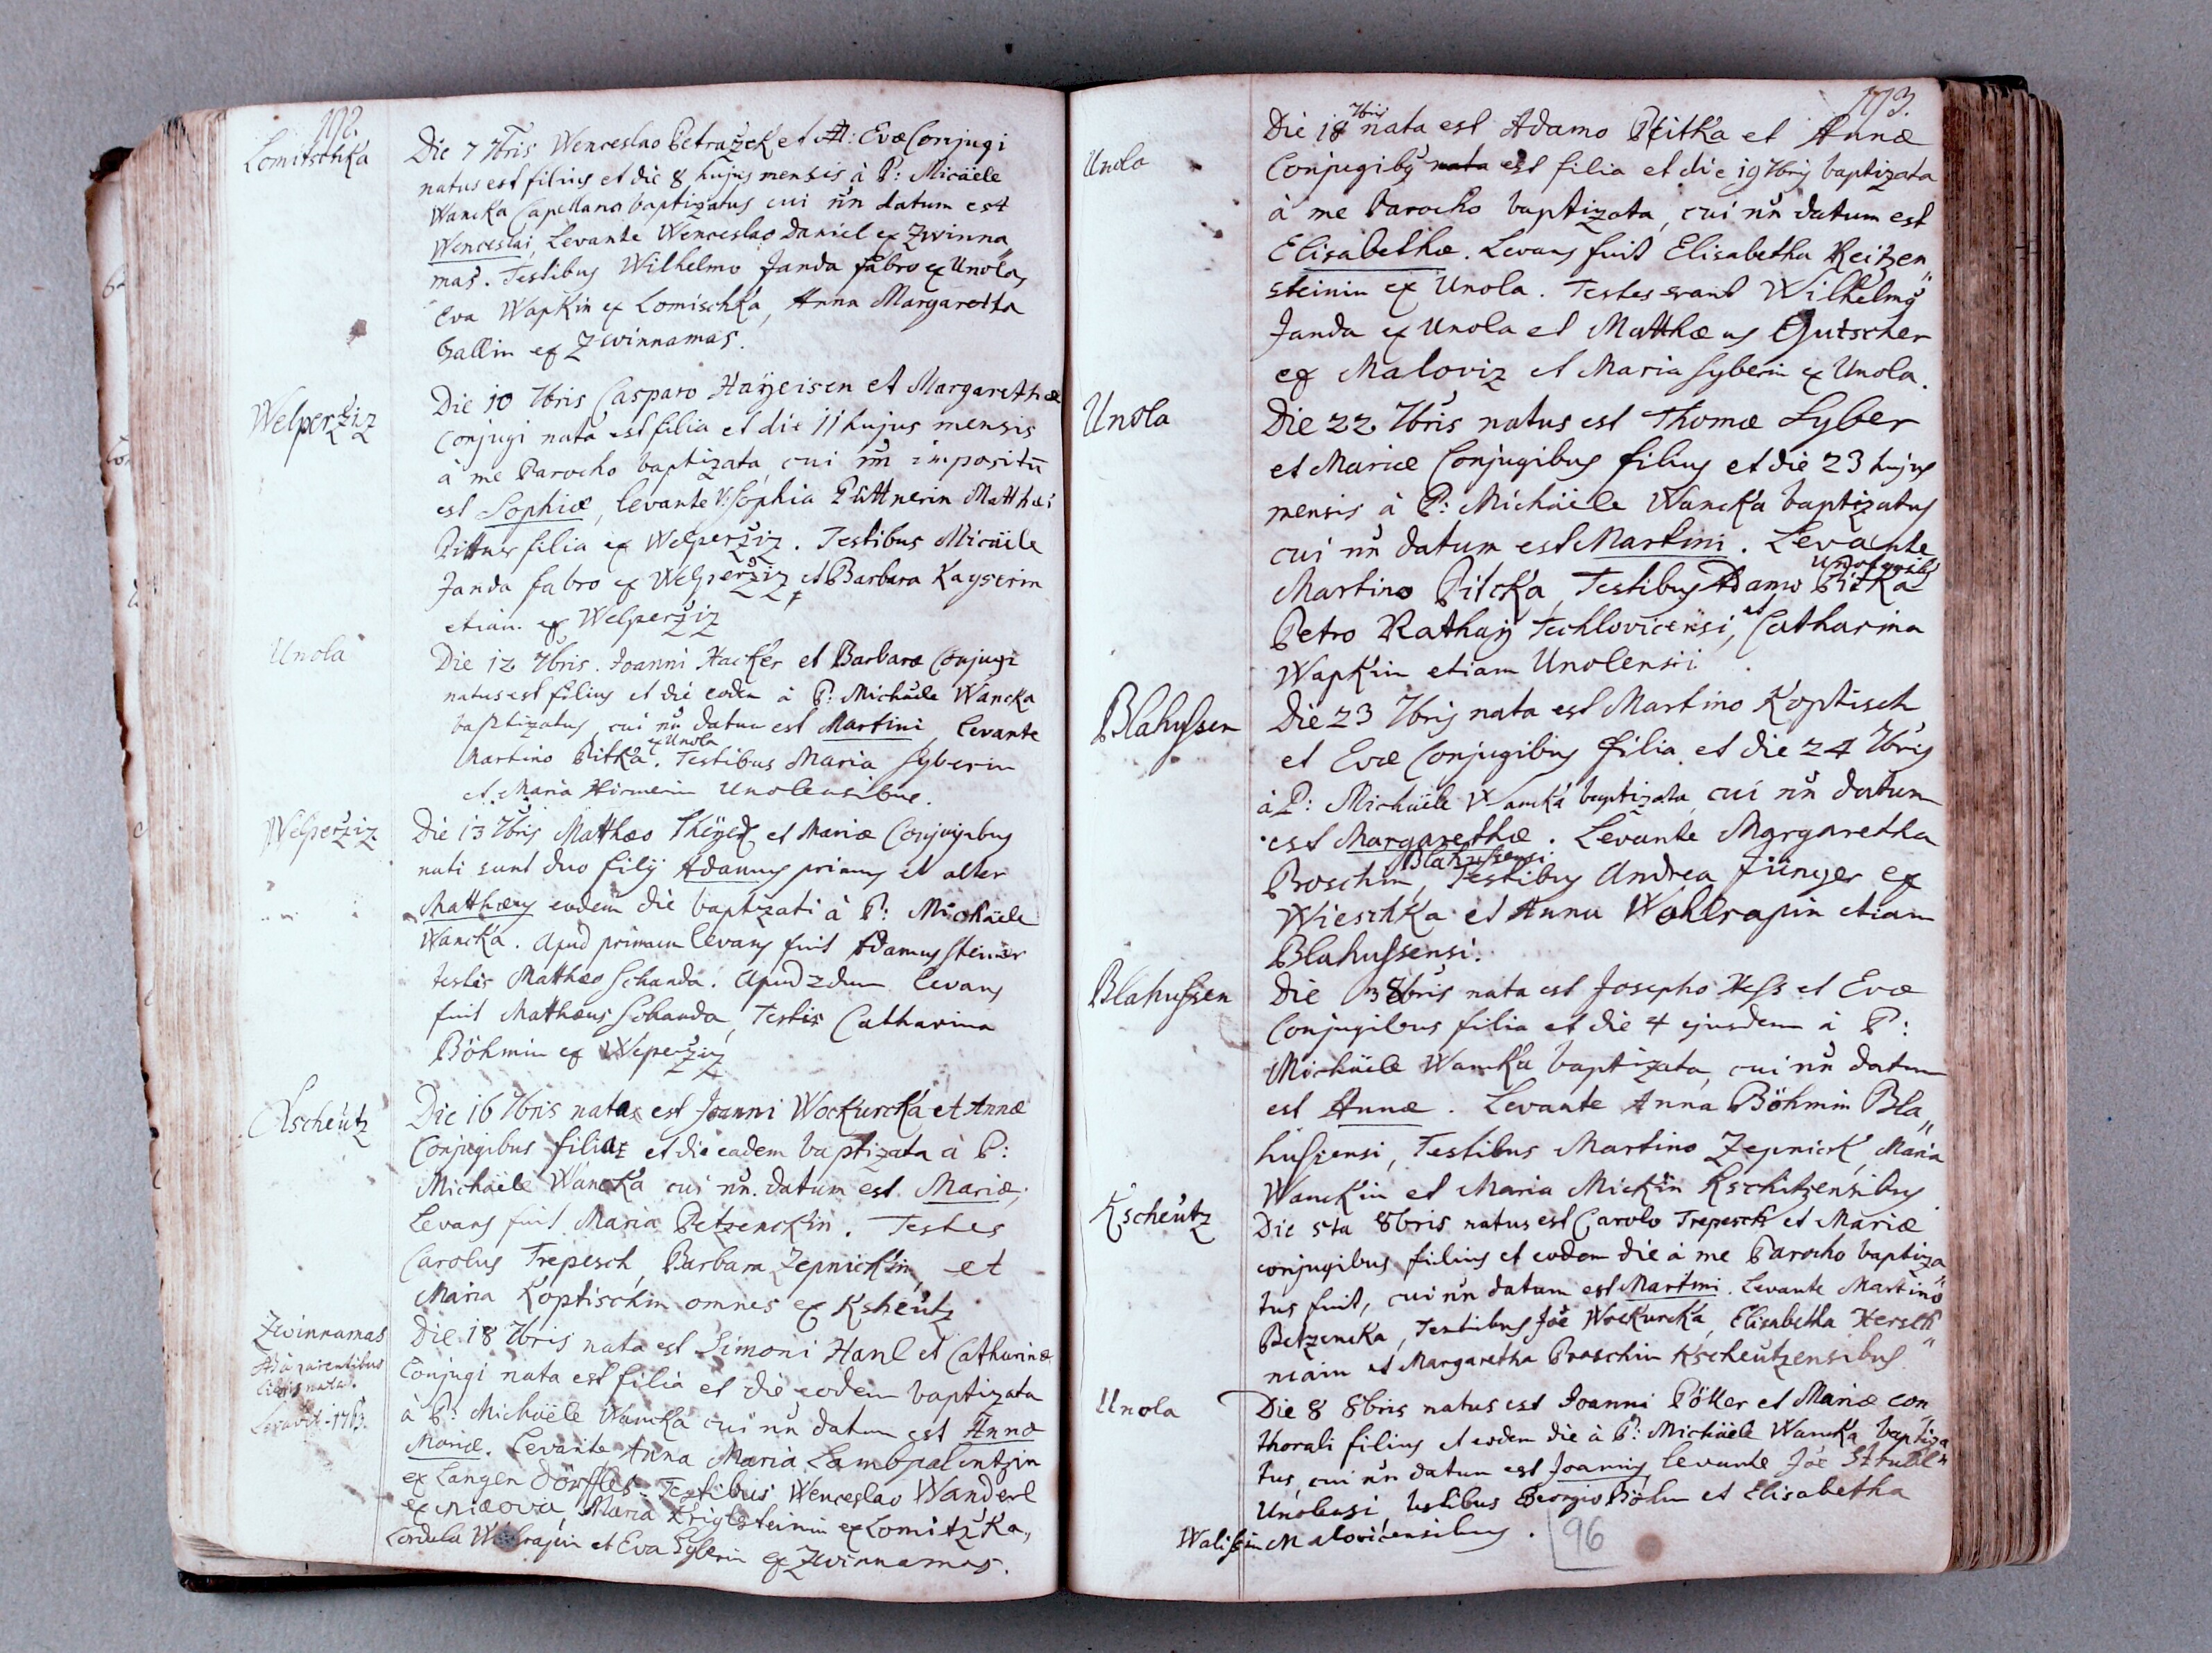 192.
Lomitschka
Die 7 7bris Wenceslao Petražek et A: Evæ Conjugi
natus est filius et die 8 hujus mensis à P: Micäele
Wancka Capellano baptizatus cui nn datum est
Wenceslai, Levante Wenceslao Daniel ex Zwinna„
mas. Testibus Wilhelmo Janda fabro ex Unola,
Eva Wapkin ex Lomischka, Anna Margaretha
Gallin ex Zwinnamas.
Welperžiz
Die 10 7bris Casparo Haÿeisen et Margarethæ
Conjugi nata est filia et die 11 hujus mensis
à me Parocho baptizata, cui nn impositū
est Sophiæ, levante V: Sophia Püttnerin Matthæi
Pittner filia ex Welperžiz. Testibus Micäele
Janda fabro ex Welperžiz et Barbara Kayserin
etiam ex Welperžiz
Unola
Die 12 7bris. Joanni Hacker et Barbaræ Conjugi
natus est filius et die eodem à P: Michäele Wancka
baptizatus, cui nn datum est Martini, levante
Martino Pitka ex Unola. Testibus Maria Syberin
et Maria Hirmerin Unolensibus.
Welperžiz
Die 13 7bris Matthæo et Mariæ Conjugibus
nati sunt duo filij Adamus primus et alter
Matthæus eodem die baptizati à P: Michäele
Wancka. Apud primum levans fuit Adamus Steiner
testis Matthæo Schanda. Apud 2dum levans
fuit Matthæus Schanda, Testis Catharina
Böhmin ex Weperžiz
Kscheutz
Die 16 7bris nata est Joanni Wockurcka et Annæ
Conjugibus filia et die eadem baptizata à P:
Michäele Wancka cui nn. datum est Mariæ,
Levans fuit Maria Petzenckin. Testes
Carolus Trepesch, Barbara Zepnickin, et
Maria Koptischin omnes ex Ksheutz
Zwinnamas
Die 18 7bris nata est Simoni Hanl et Catharinæ
Conjugi nata est filia et die eodem baptizata
à P: Michäele Wancka cui nn datum est Annæ
Mariæ. Levante Anna Maria Lambpalintzin
ex Langen Dörfles. Testibus Wenceslao Wanderl
ex Maria Kriglsteinin ex Lomitžka„
Cordula Wolrapin et Eva Syberin ex Zwinnamas.
193.
Unola
Die 18 7bris nata est Adamo Pitka et Annæ
Conjugibus nata est filia et die 19 7bris baptizata
à me Parocho baptizata, cui nn datum est
Elisabethæ. Levans fuit Elisabetha Reitzen„
steinin ex Unola. Testes erant Wilhelmus
Janda ex Unola et Matthæus Gutscher
ex Maloviz et Maria Syberin ex Unola.
Unola
Die 22 7bris natus est Thomæ Syber
et Mariæ Conjugibus filius et die 23 hujus
mensis à P: Michäele Wancka baptizatus
cui nn datum est Martini. Levante
Martino Pitcka, Testibus Adamo Pitka
Petro Rathaÿ Techlovicensi, et Catharina
Wapkin etiam Unolensi.
Blahussen
Die 23 7bris nata est Martino Koptisch
et Evæ Conjugibus filia et die 24 7bris
à P: Michäele Wancka baptizata cui nn datum
est Margarethæ. Levante Margaretha
Proschin Blahussensi, Testibus Andrea Jünger ex
Wieschka et Anna Wohlrapin etiam
Blahussensi.
Blahussen
Die 3 8bris nata est Josepho Hess et Evæ
Conjugibus filia et die 4 ejusdem à P:
Michäele Wancka baptizata, cui nn datum
est Annæ. Levante Anna Böhmin Bla„
hussensi, Testibus Martino Zepnick, Maria
Wanckin et Maria Mickin Kschitzensibus
Kscheutz
Die 5ta 8bris natus est Carolo Trepesch et Mariæ
conjugibus filius et eodem die à me Parocho baptiza„
tus fuit, cui nn datum est Martini. Levante Martino
Betzencka, Testibus Joe Wockurcka, Elisabetha Hersch„
et Margaretha Proschin Kscheutzensibus
Unola
Die 8 8bris natus est Joanni Pötter et Mariæ con„
thorali filius et eodem die à P: Michäele Wancka baptiza„
tus, cui nn datum est Joannis, levante Joe
Unolensi, testibus Georgio Böhm et Elisabetha
Walissin Malovicensibus.
96